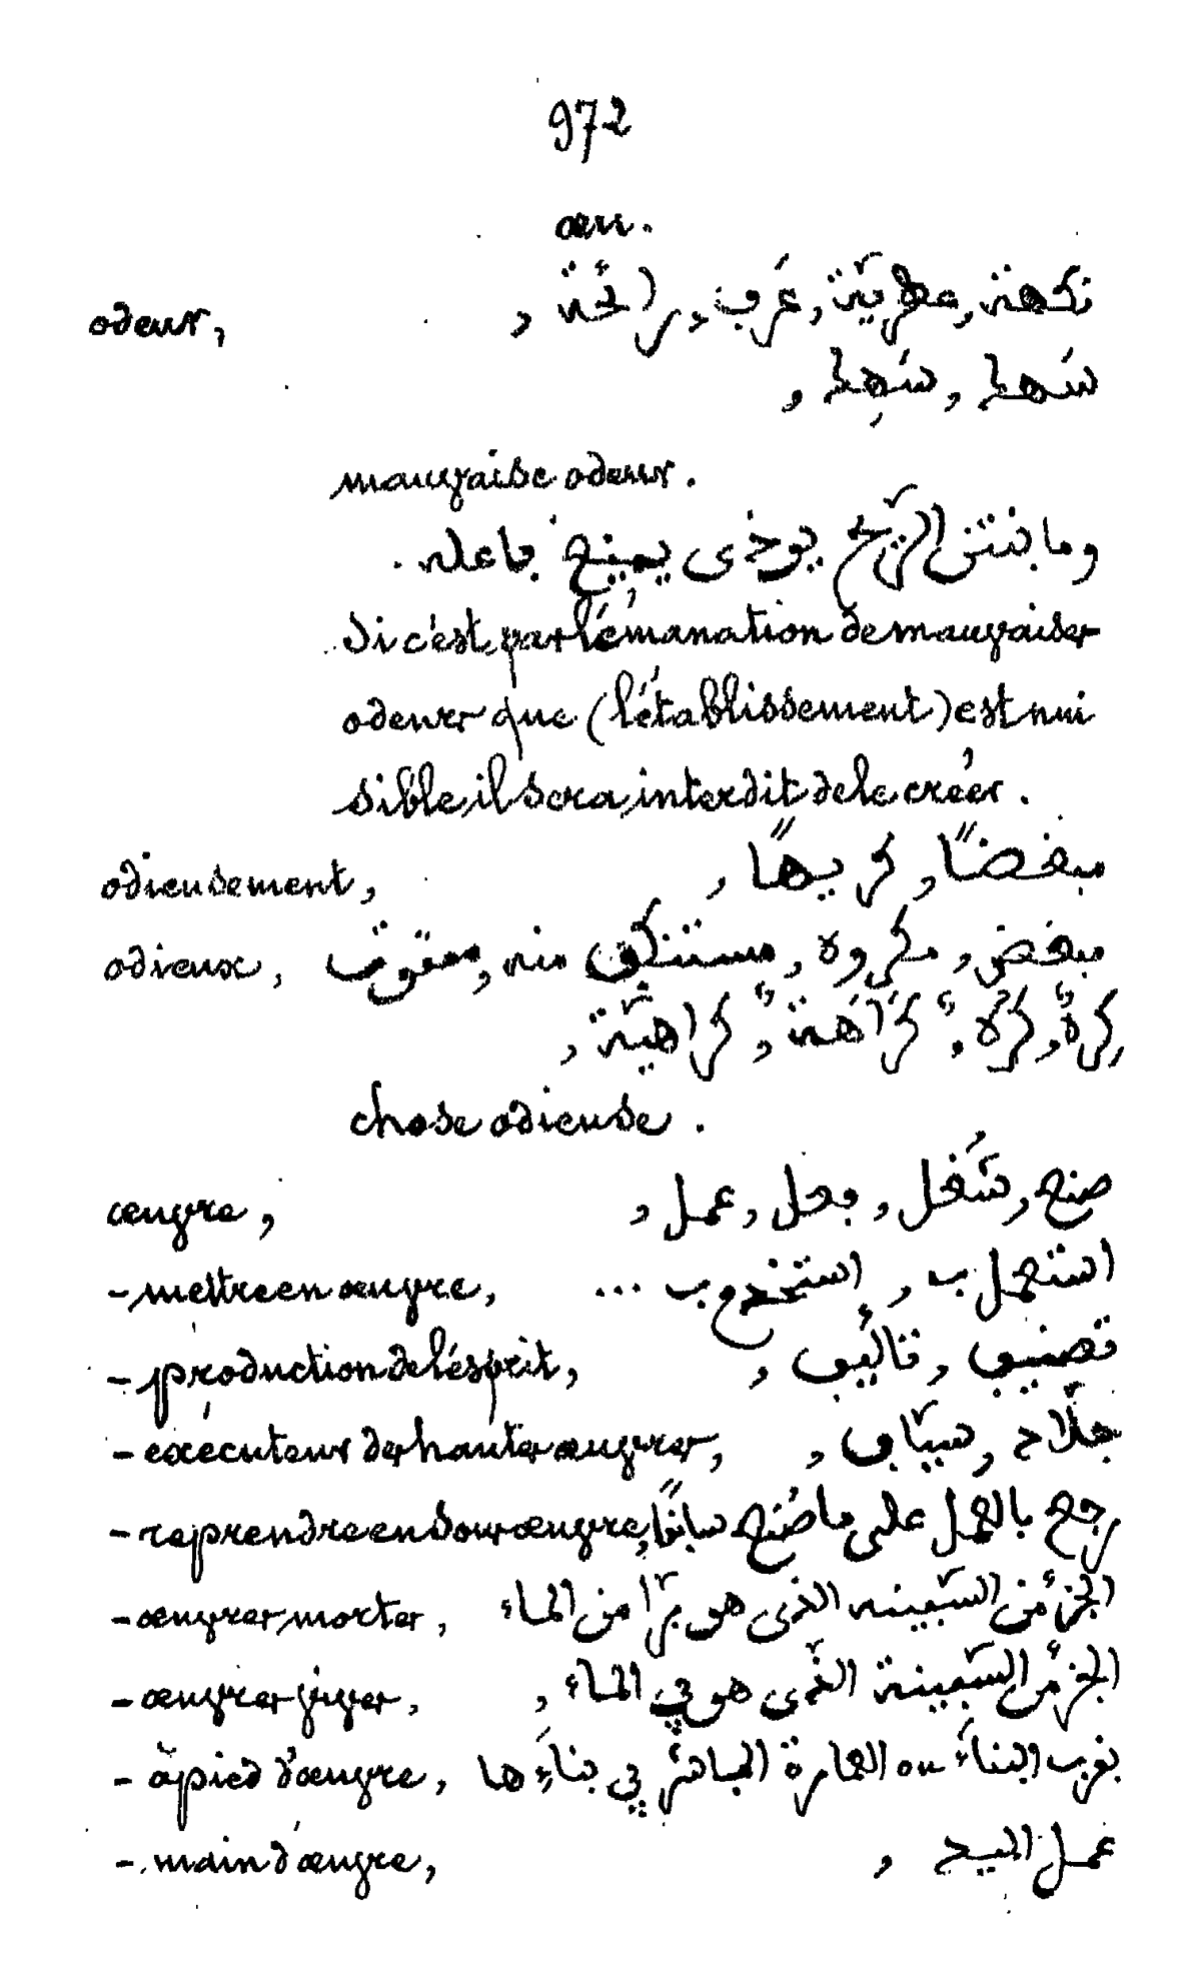 972
œu.
odeur, نكهة, عطريّة, عَرب, رائحة,
سَهط, سَهِط,
mauvaise odeur.
وما بنتن الرّيح يوذى يمنع فاعله.
si c'est par l'émanation de mauvaises
odeurs que (l'établissement) est nui
sible, il sera interdit de le créer.
odieusement, مبغضًا, كريهًا,
odieux, مبغض, مكروه, مستنكف منه, ممقوت
كرهٌ, كُرهٌ, كَرَاهَة, كراهيّة,
chose odieuse.
œuvre, صنع, شغل, فعل, عمل,
- mettre en œuvre, استعمل ب, استخدم ب ...
- production de l'ésprit, تصنيف, تأليف,
- exécuteur des hautes œuvres, جلّاد, سيّاف,
- reprendre en sous œuvre, رجع بالعمل على ما صُنع سابقًا,
- œuvres mortes, الجزء من السّفينه الذى هو برّا من الماء
- œuvres vives, الجزء من السّفينة الذى هو في الماء,
- à pied d'œuvre, بقرب البناء ou العمارة المباشر في بناءها
- main d'œuvre, عمل اليد,